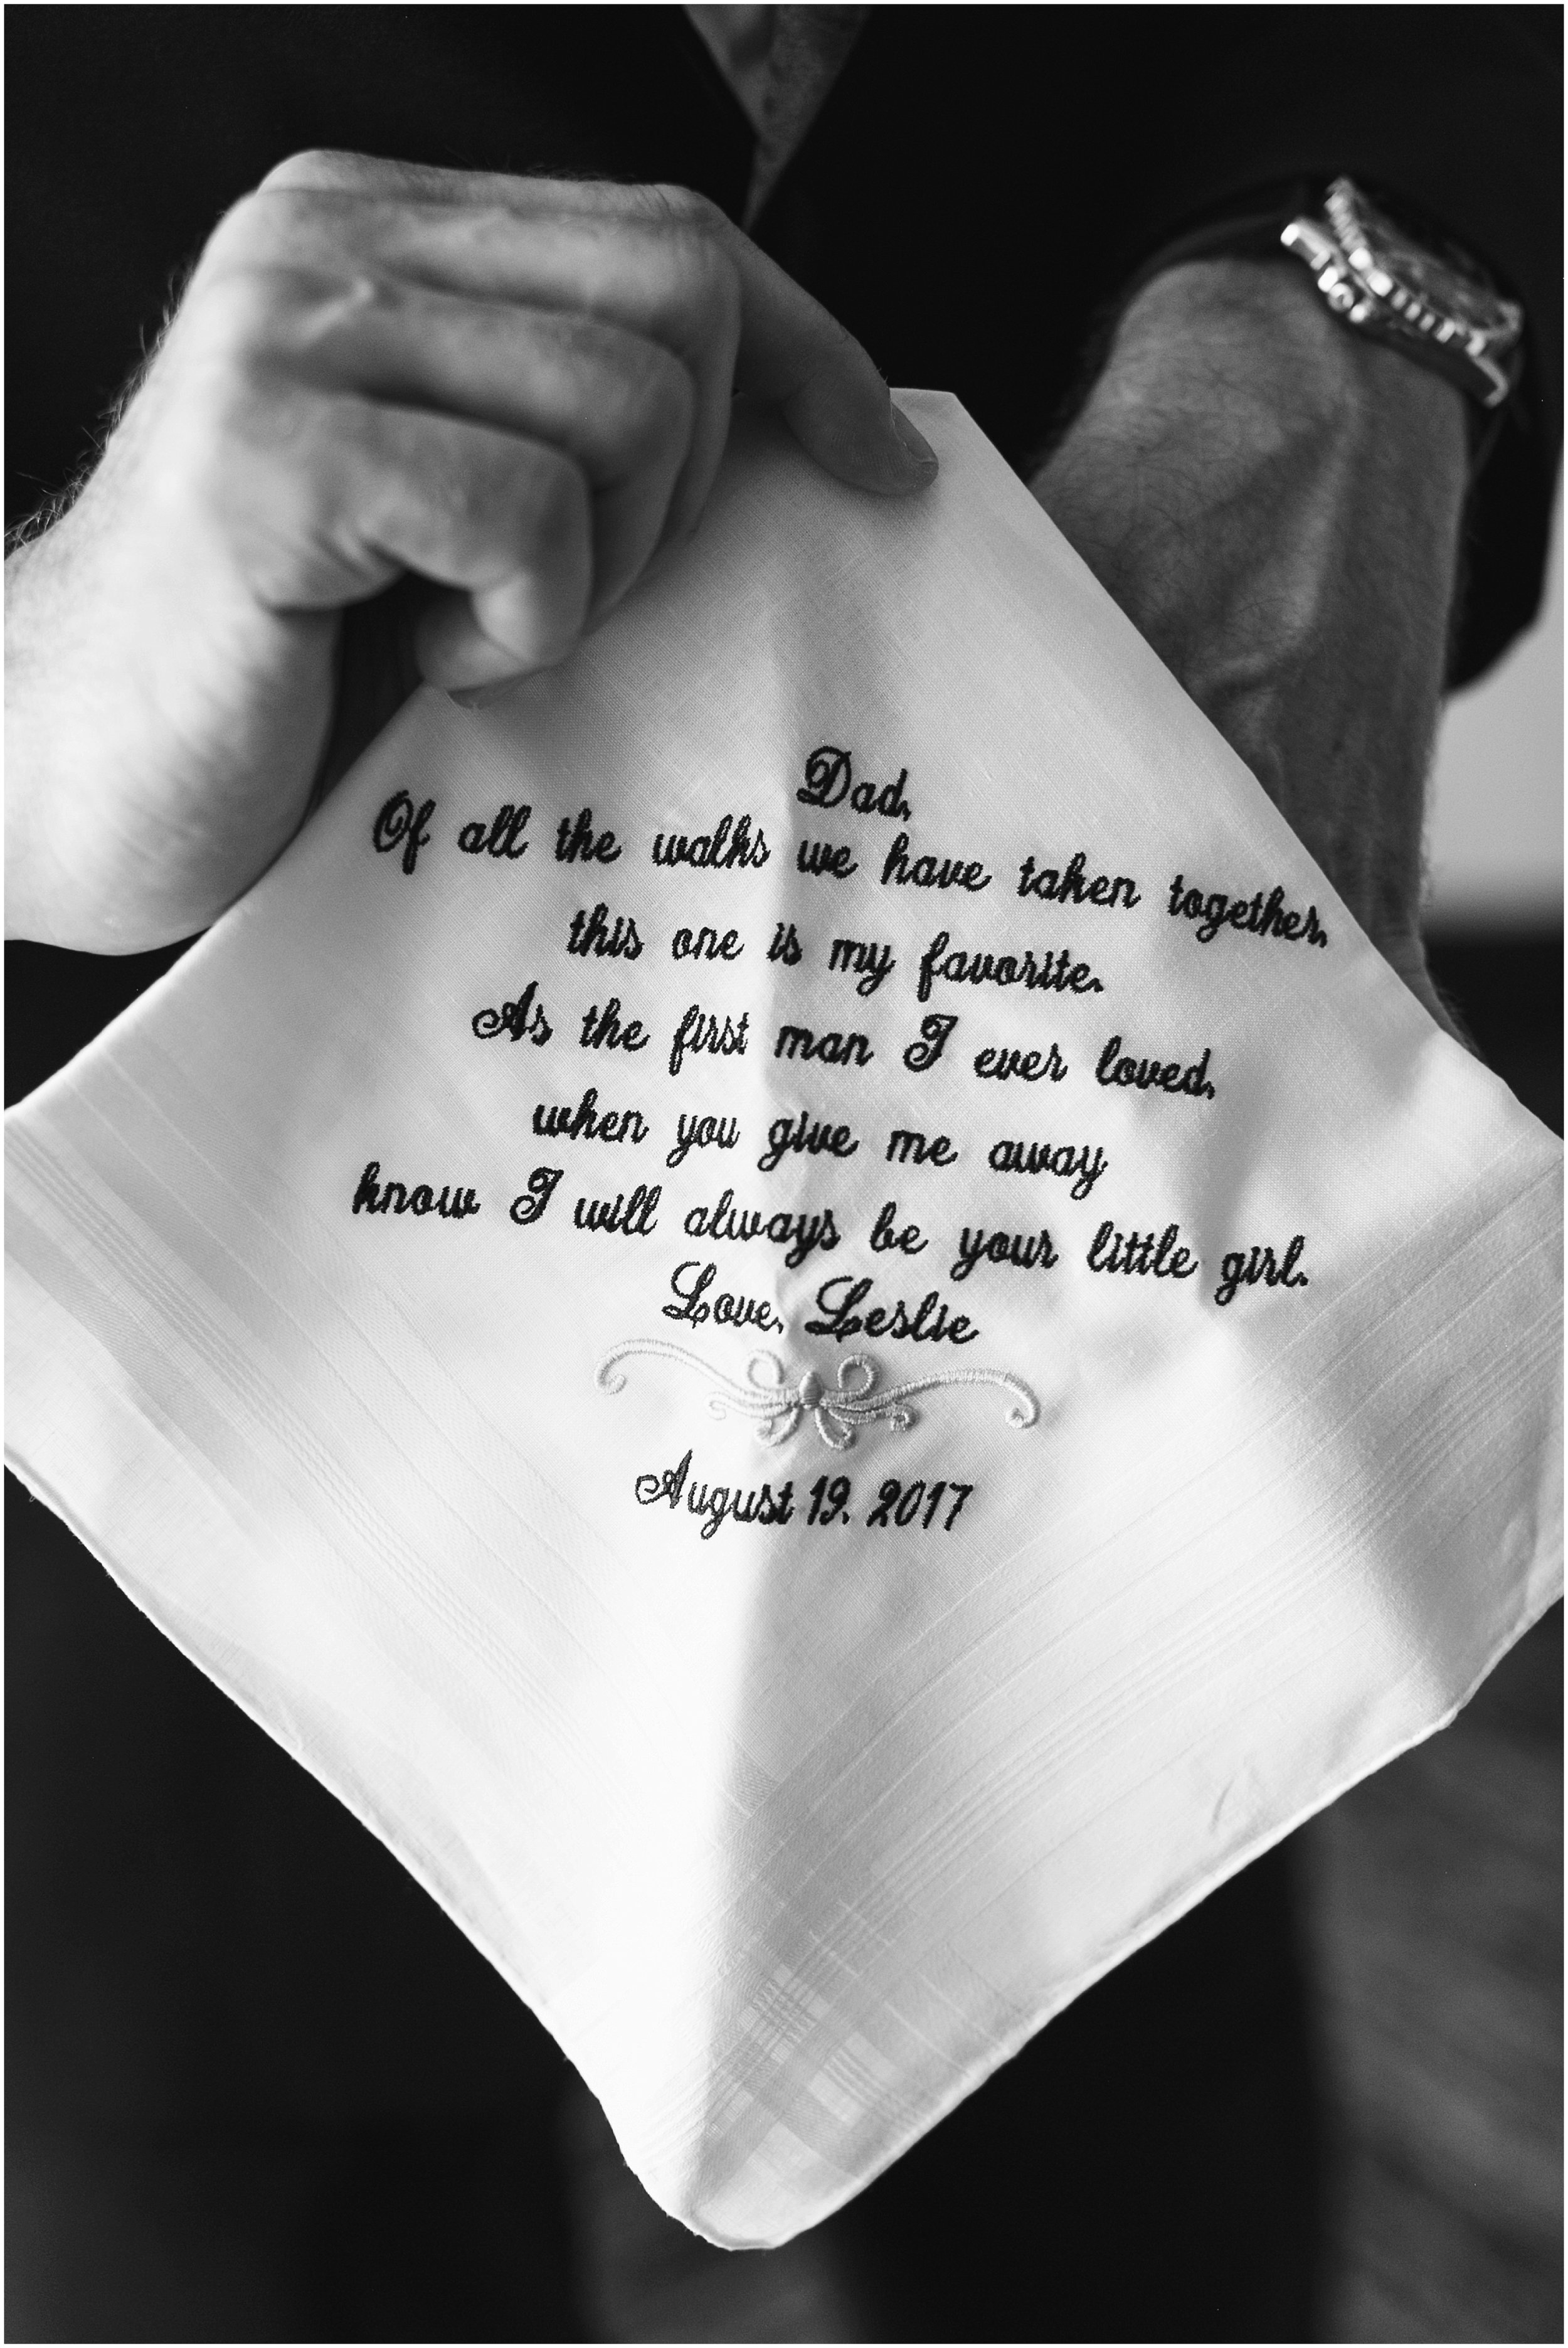 Dad,
Of all the walks we have taken together,
this one is my favorite.
As the first man I ever loved,
when you give me away
know I will always be your little girl.
Love, Leslie
August 19, 2017